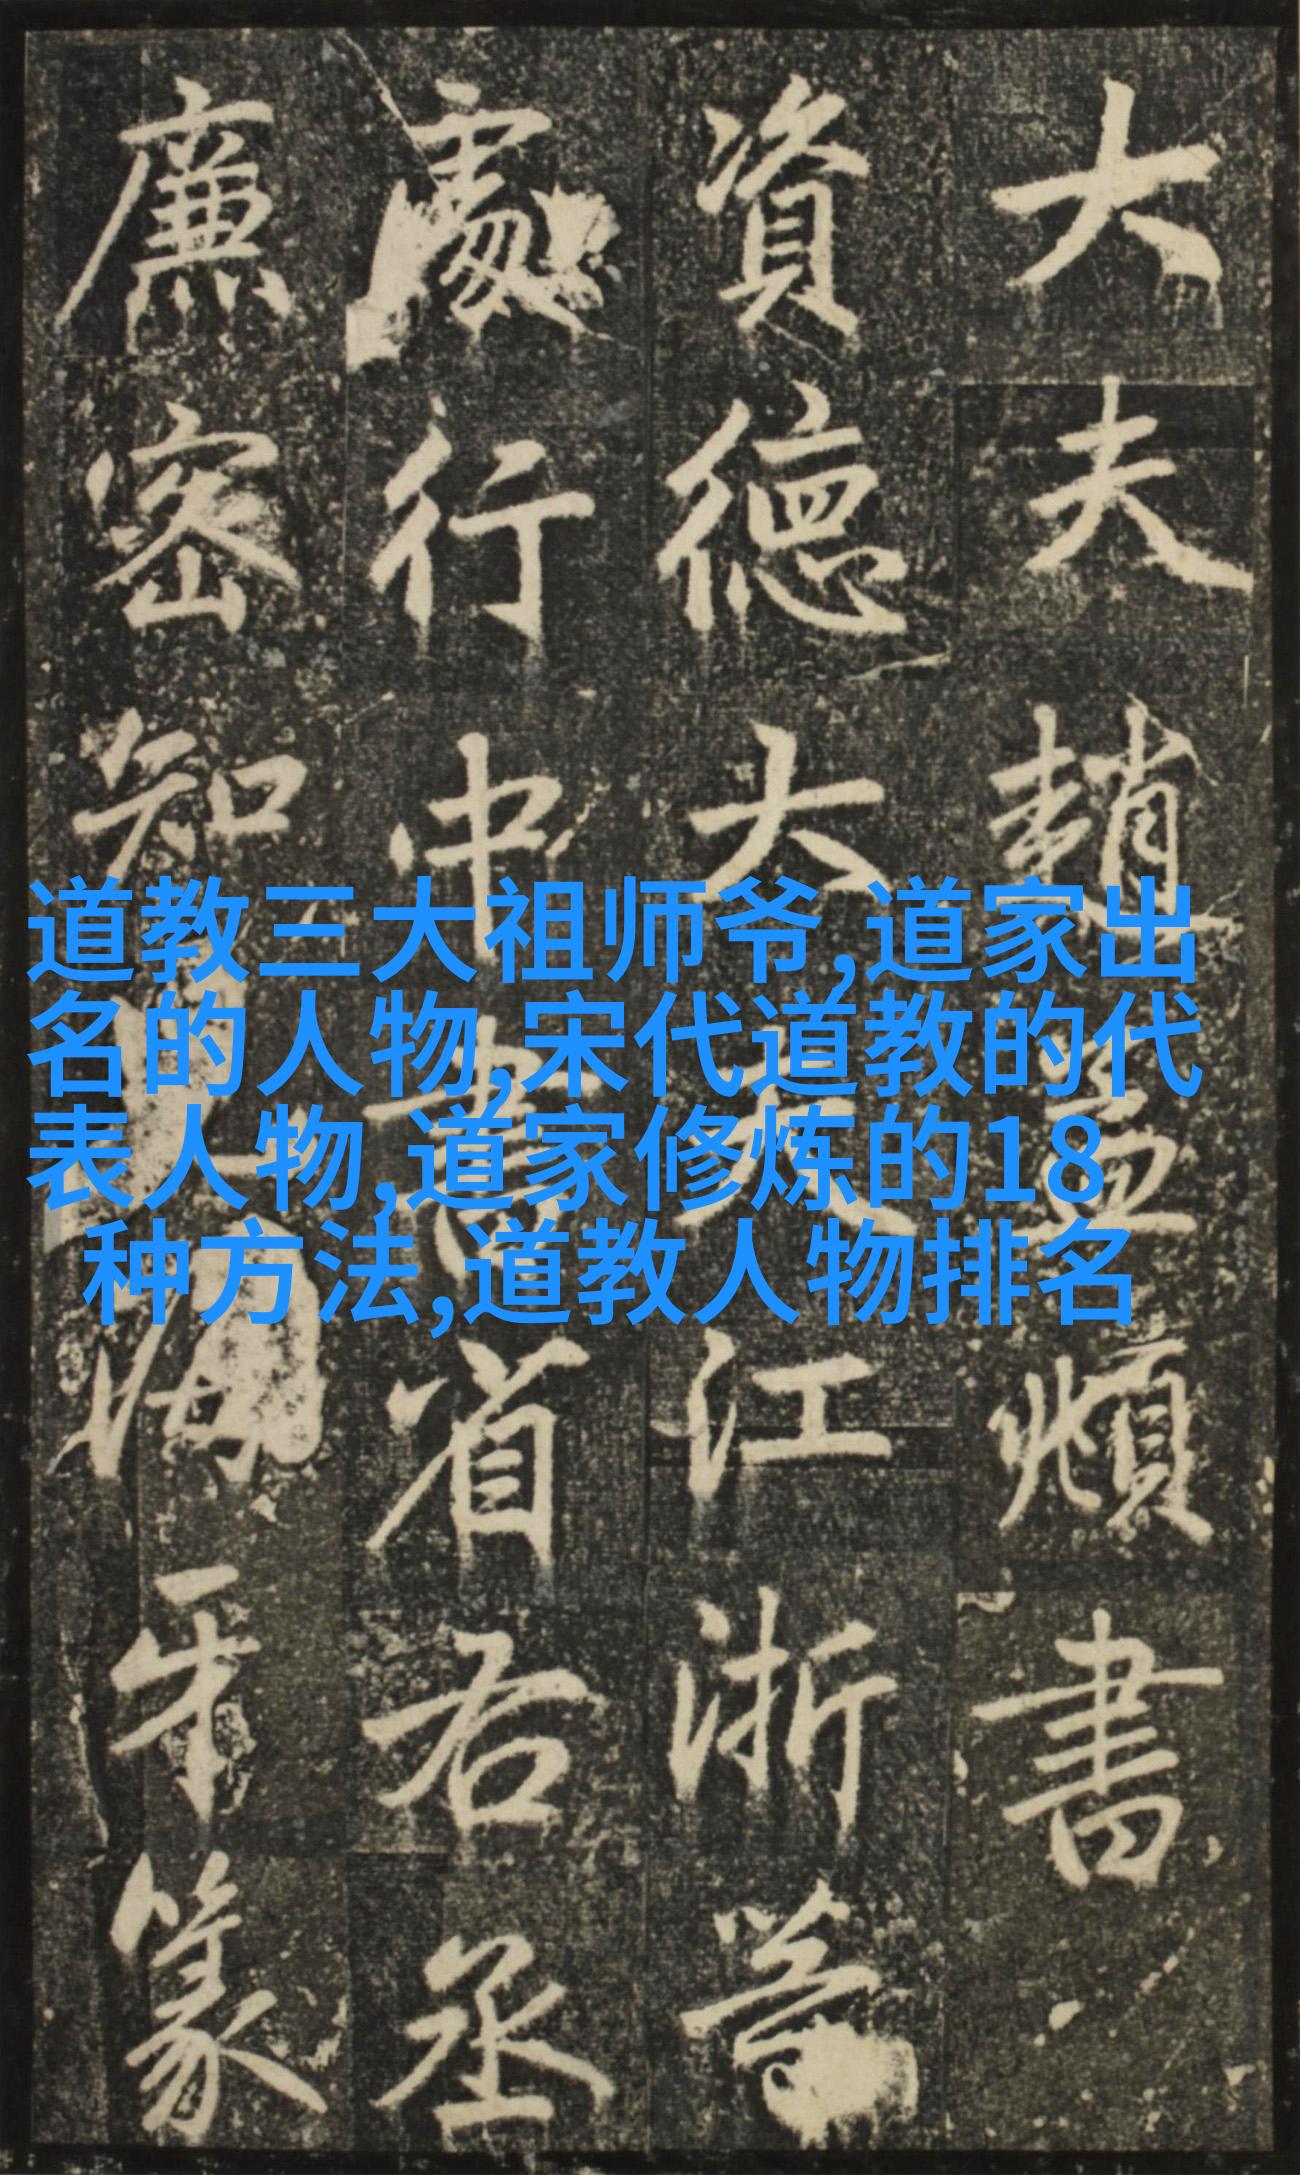 大夫趙孟頫書
資德大夫江浙等
處行中書省右丞
廉密知海牙篆
道教三大祖师爷,道家出
名的人物,宋代道教的代
表人物,道家修炼的18
种方法,道教人物排名